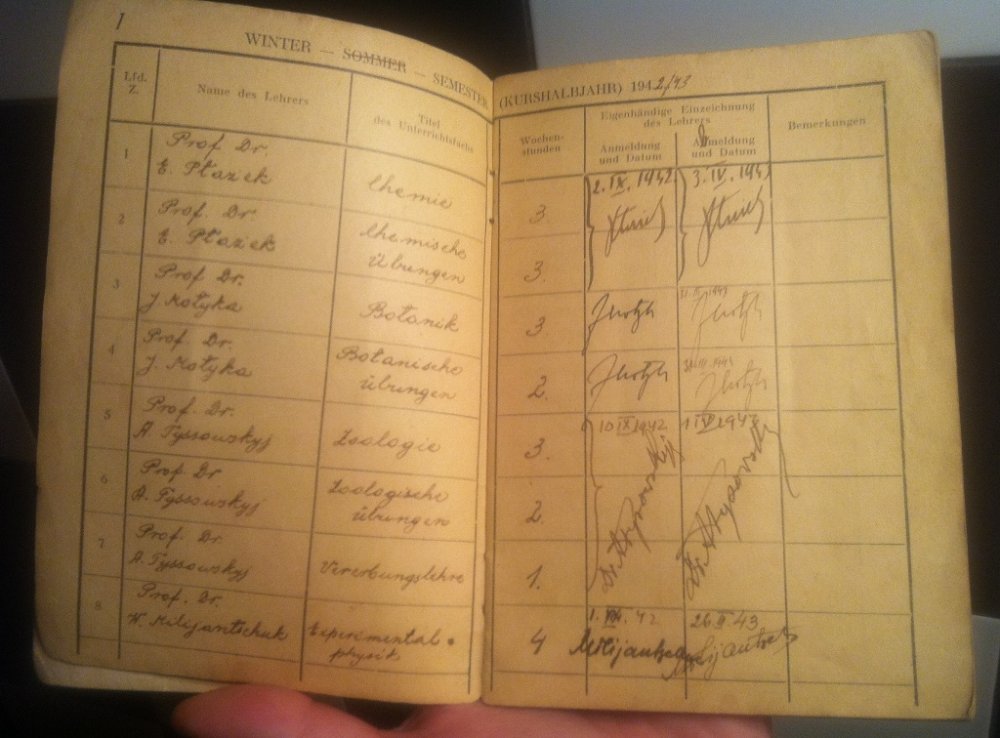 I
WINTER — SOMMER — SEMESTER
Lfd. Z.
Name des Lehrers
Titel
des Unterrichtsfachs
1
Prof Dr
E. Płazek
Chemie
2
Prof. Dr
E. Płazek
Chemische
Übungen
3
Prof Dr.
J. Motyka
Botanik
4
Prof. Dr.
J. Motyka
Botanische
Übungen
5
Prof. Dr
A. Tyssowskyj
Zoologie
6
Prof. Dr
A. Tyssowskyj
Zoologische
Übungen
7
Prof. Dr.
A. Tyssowskyj
Vererbungslehre
8
Prof. Dr.
W. Milijantschuk
Experimental
physik
(KURSHALBJAHR) 1942/43
Wochen-
stunden
Eigenhändige Einzeichnung
des Lehrers
Anmeldung
und Datum
Abmeldung
und Datum
Bemerkungen
3.
2. IX. 1942
3. IV. 1943
3.
3.
31. III. 1943
2.
31. III. 1943
3.
10 IX 1942
1 IV 1943
2.
1.
4
42
26. II. 43